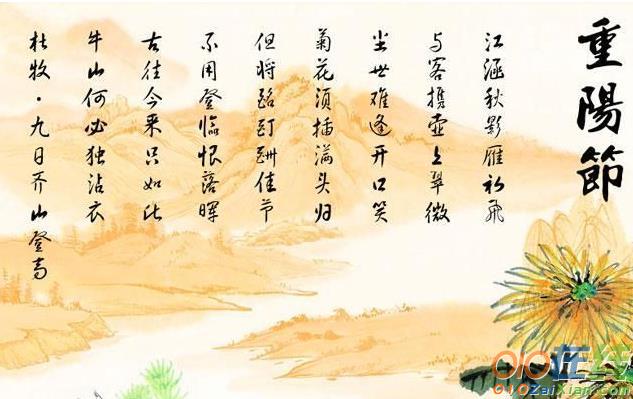 重陽節
江涵秋影雁初飞
与客携壶上翠微
尘世难逢开口笑
菊花须插满头归
但将酩酊酬佳节
不用登临恨落晖
古往今来只如此
牛山何必独沾衣
杜牧·九日齐山登高
010在线
010ZaiXian.com